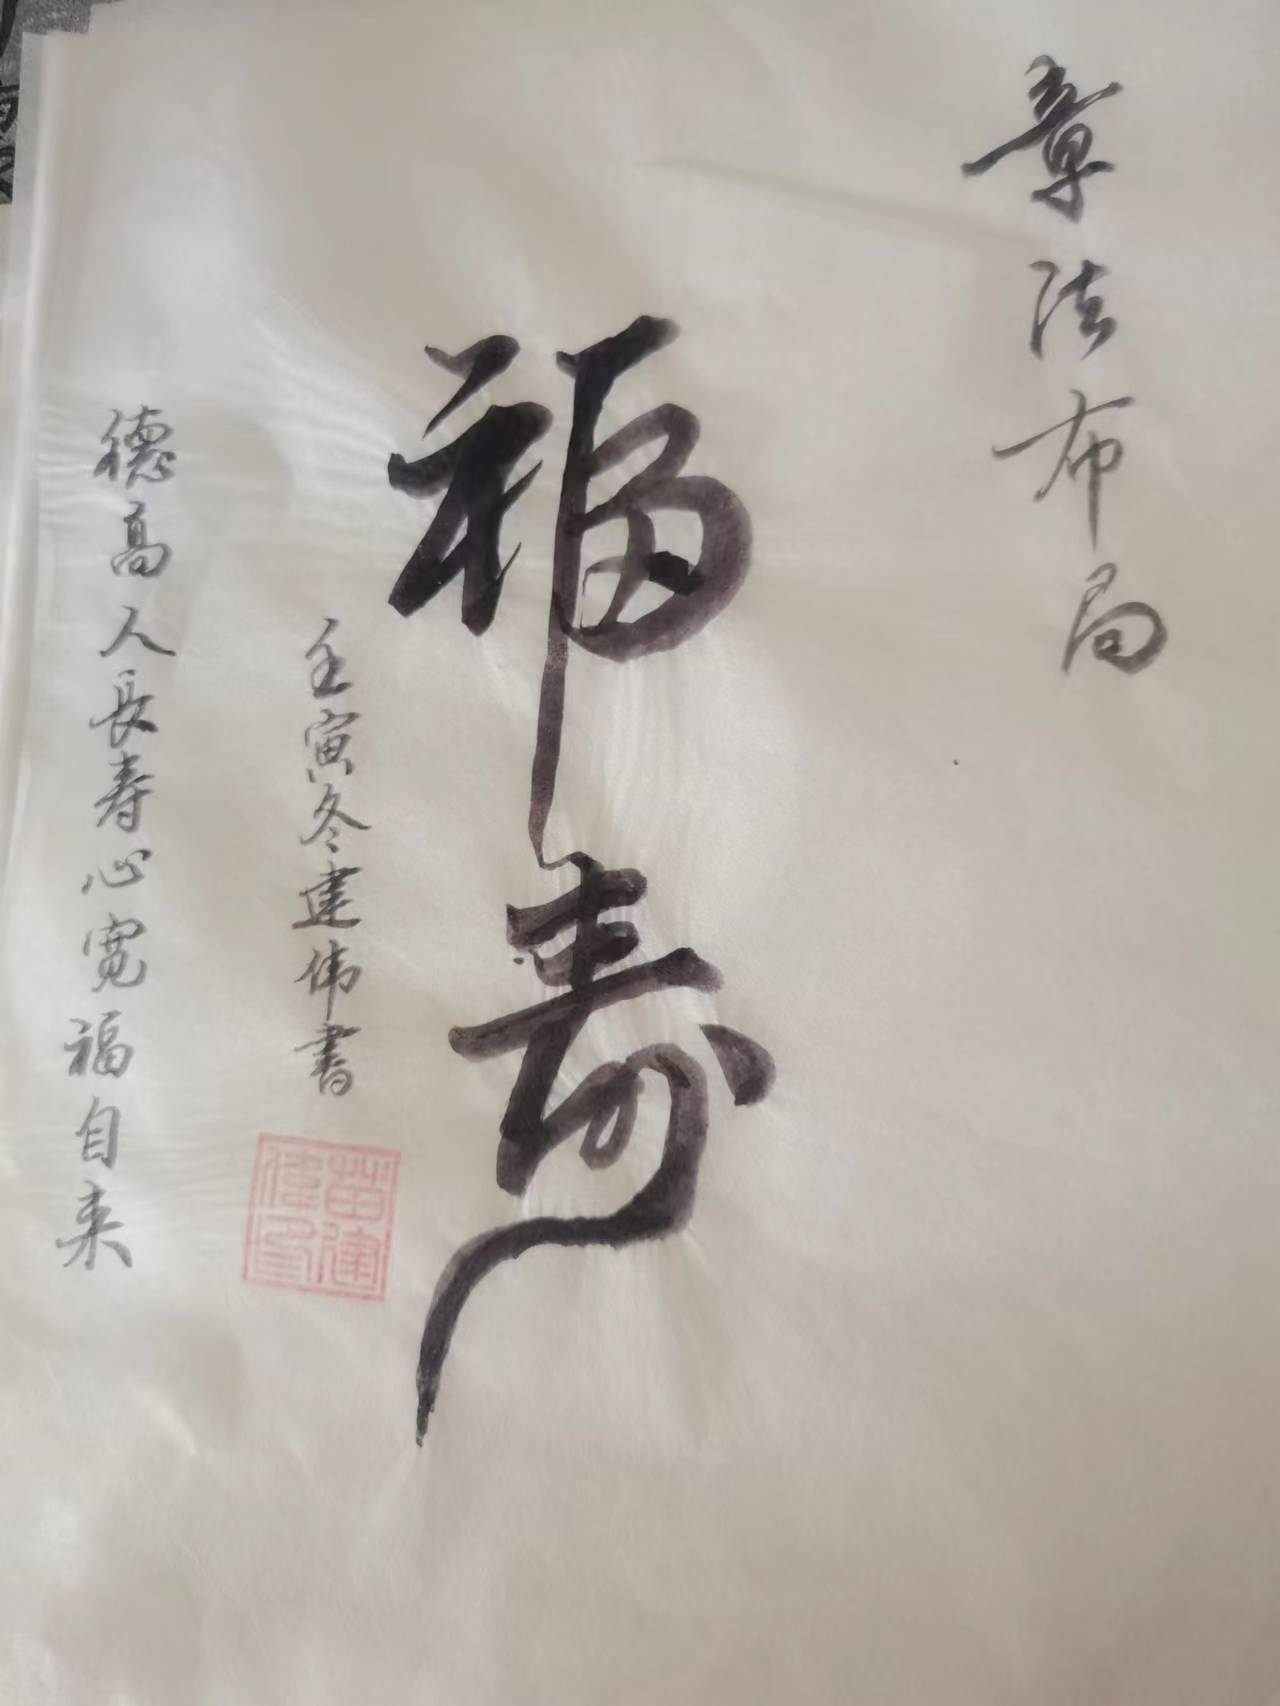 章法布局
福寿
壬寅冬建伟書
苗建
偉印
德高人長寿心宽福自来